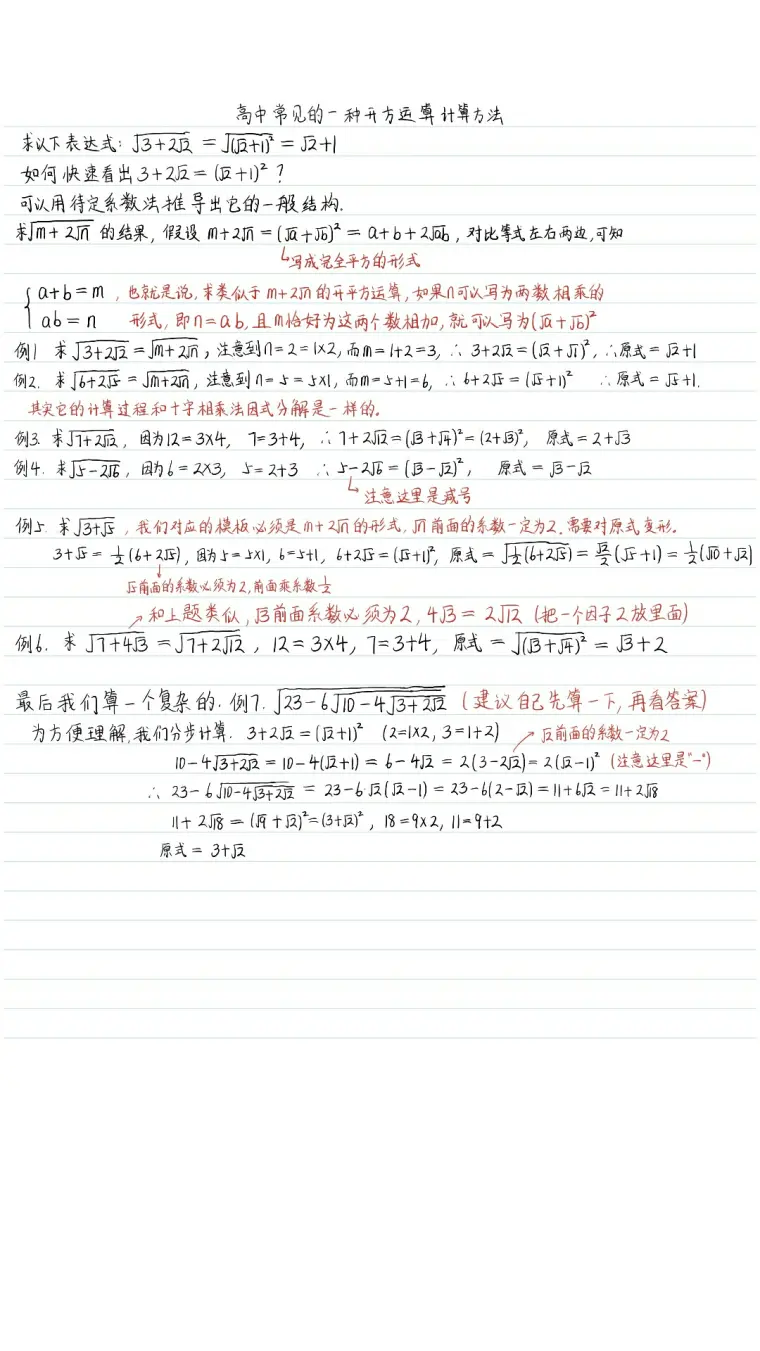 高中常见的一种开方运算计算方法
求以下表达式: √(3+2√2) = √((√2+1)²) = √2+1
如何快速看出 3+2√2 = (√2+1)² ?
可以用待定系数法推导出它的一般结构.
求√(m+2√n) 的结果, 假设 m+2√n = (√a+√b)² = a+b+2√ab, 对比等式左右两边,可知
写成完全平方的形式
{ a+b=m , 也就是说, 求类似于 m+2√n 的开平方运算, 如果n可以写为两数相乘的
ab=n 形式, 即 n=ab, 且m恰好为这两个数相加, 就可以写为(√a+√b)²
例1 求√(3+2√2) = √(m+2√n) , 注意到 n=2=1×2, 而 m=1+2=3, ∴ 3+2√2=(√2+√1)², ∴原式=√2+1
例2. 求√(6+2√5) = √(m+2√n) , 注意到 n=5=5×1, 而 m=5+1=6, ∴ 6+2√5=(√5+1)² ∴原式=√5+1.
其实它的计算过程和十字相乘法因式分解是一样的.
例3. 求√(7+2√12) , 因为12=3×4, 7=3+4, ∴ 7+2√12=(√3+√4)²=(2+√3)², 原式=2+√3
例4. 求√(5-2√6) , 因为6=2×3, 5=2+3 ∴ 5-2√6=(√3-√2)², 原式=√3-√2
注意这里是减号
例5. 求√(3+√5) , 我们对应的模板必须是 m+2√n 的形式, √n 前面的系数一定为2. 需要对原式变形.
3+√5 = 1/2(6+2√5), 因为5=5×1, 6=5+1, 6+2√5=(√5+1)², 原式=√(1/2(6+2√5)) = √2/2(√5+1) = 1/2(√10+√2)
√5前面的系数必须为2,前面乘系数1/2
和上题类似, √3前面系数必须为2, 4√3 = 2√12 (把一个因子2放里面)
例6. 求 √(7+4√3) = √(7+2√12) , 12=3×4, 7=3+4, 原式=√((√3+√4)²) = √3+2
最后我们算一个复杂的. 例7. √(23-6√(10-4√(3+2√2))) (建议自己先算一下, 再看答案)
为方便理解,我们分步计算. 3+2√2=(√2+1)² (2=1×2, 3=1+2) √2前面的系数一定为2
10-4√(3+2√2) = 10-4(√2+1) = 6-4√2 = 2(3-2√2) = 2(√2-1)² (注意这里是"-")
∴ 23-6√(10-4√(3+2√2)) = 23-6·√2(√2-1) = 23-6(2-√2) = 11+6√2 = 11+2√18
11+2√18 = (√9+√2)²=(3+√2)² , 18=9×2, 11=9+2
原式= 3+√2